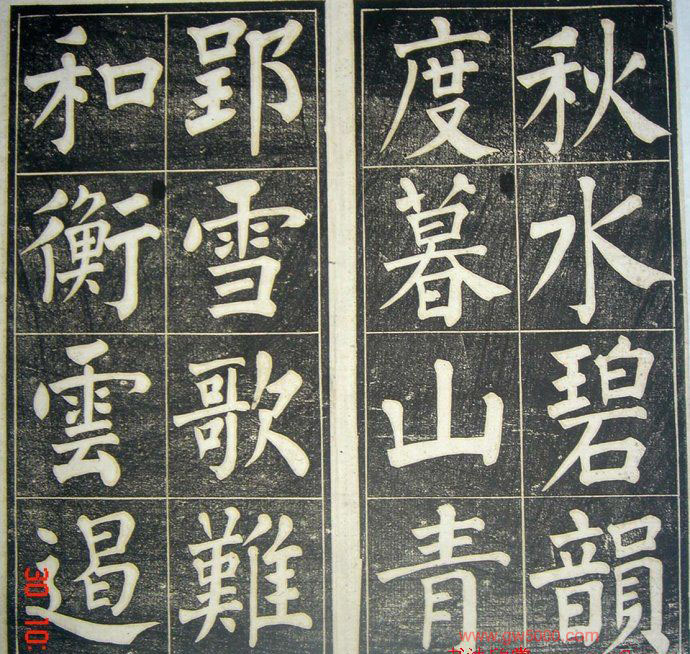 秋水碧韻
度暮山青
郢雪歌難
和衡雲遏
www.gw5000.com
30 10: